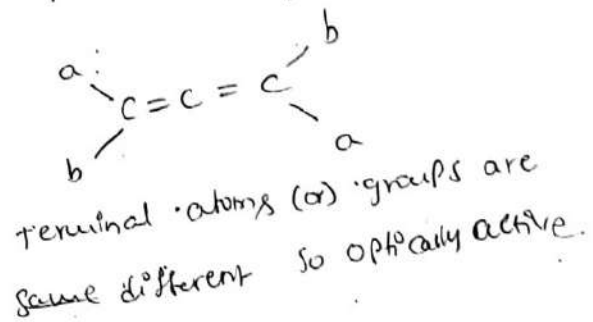 b
a
C = C = C
b
a
terminal atoms (or) groups are
same different so optically active.